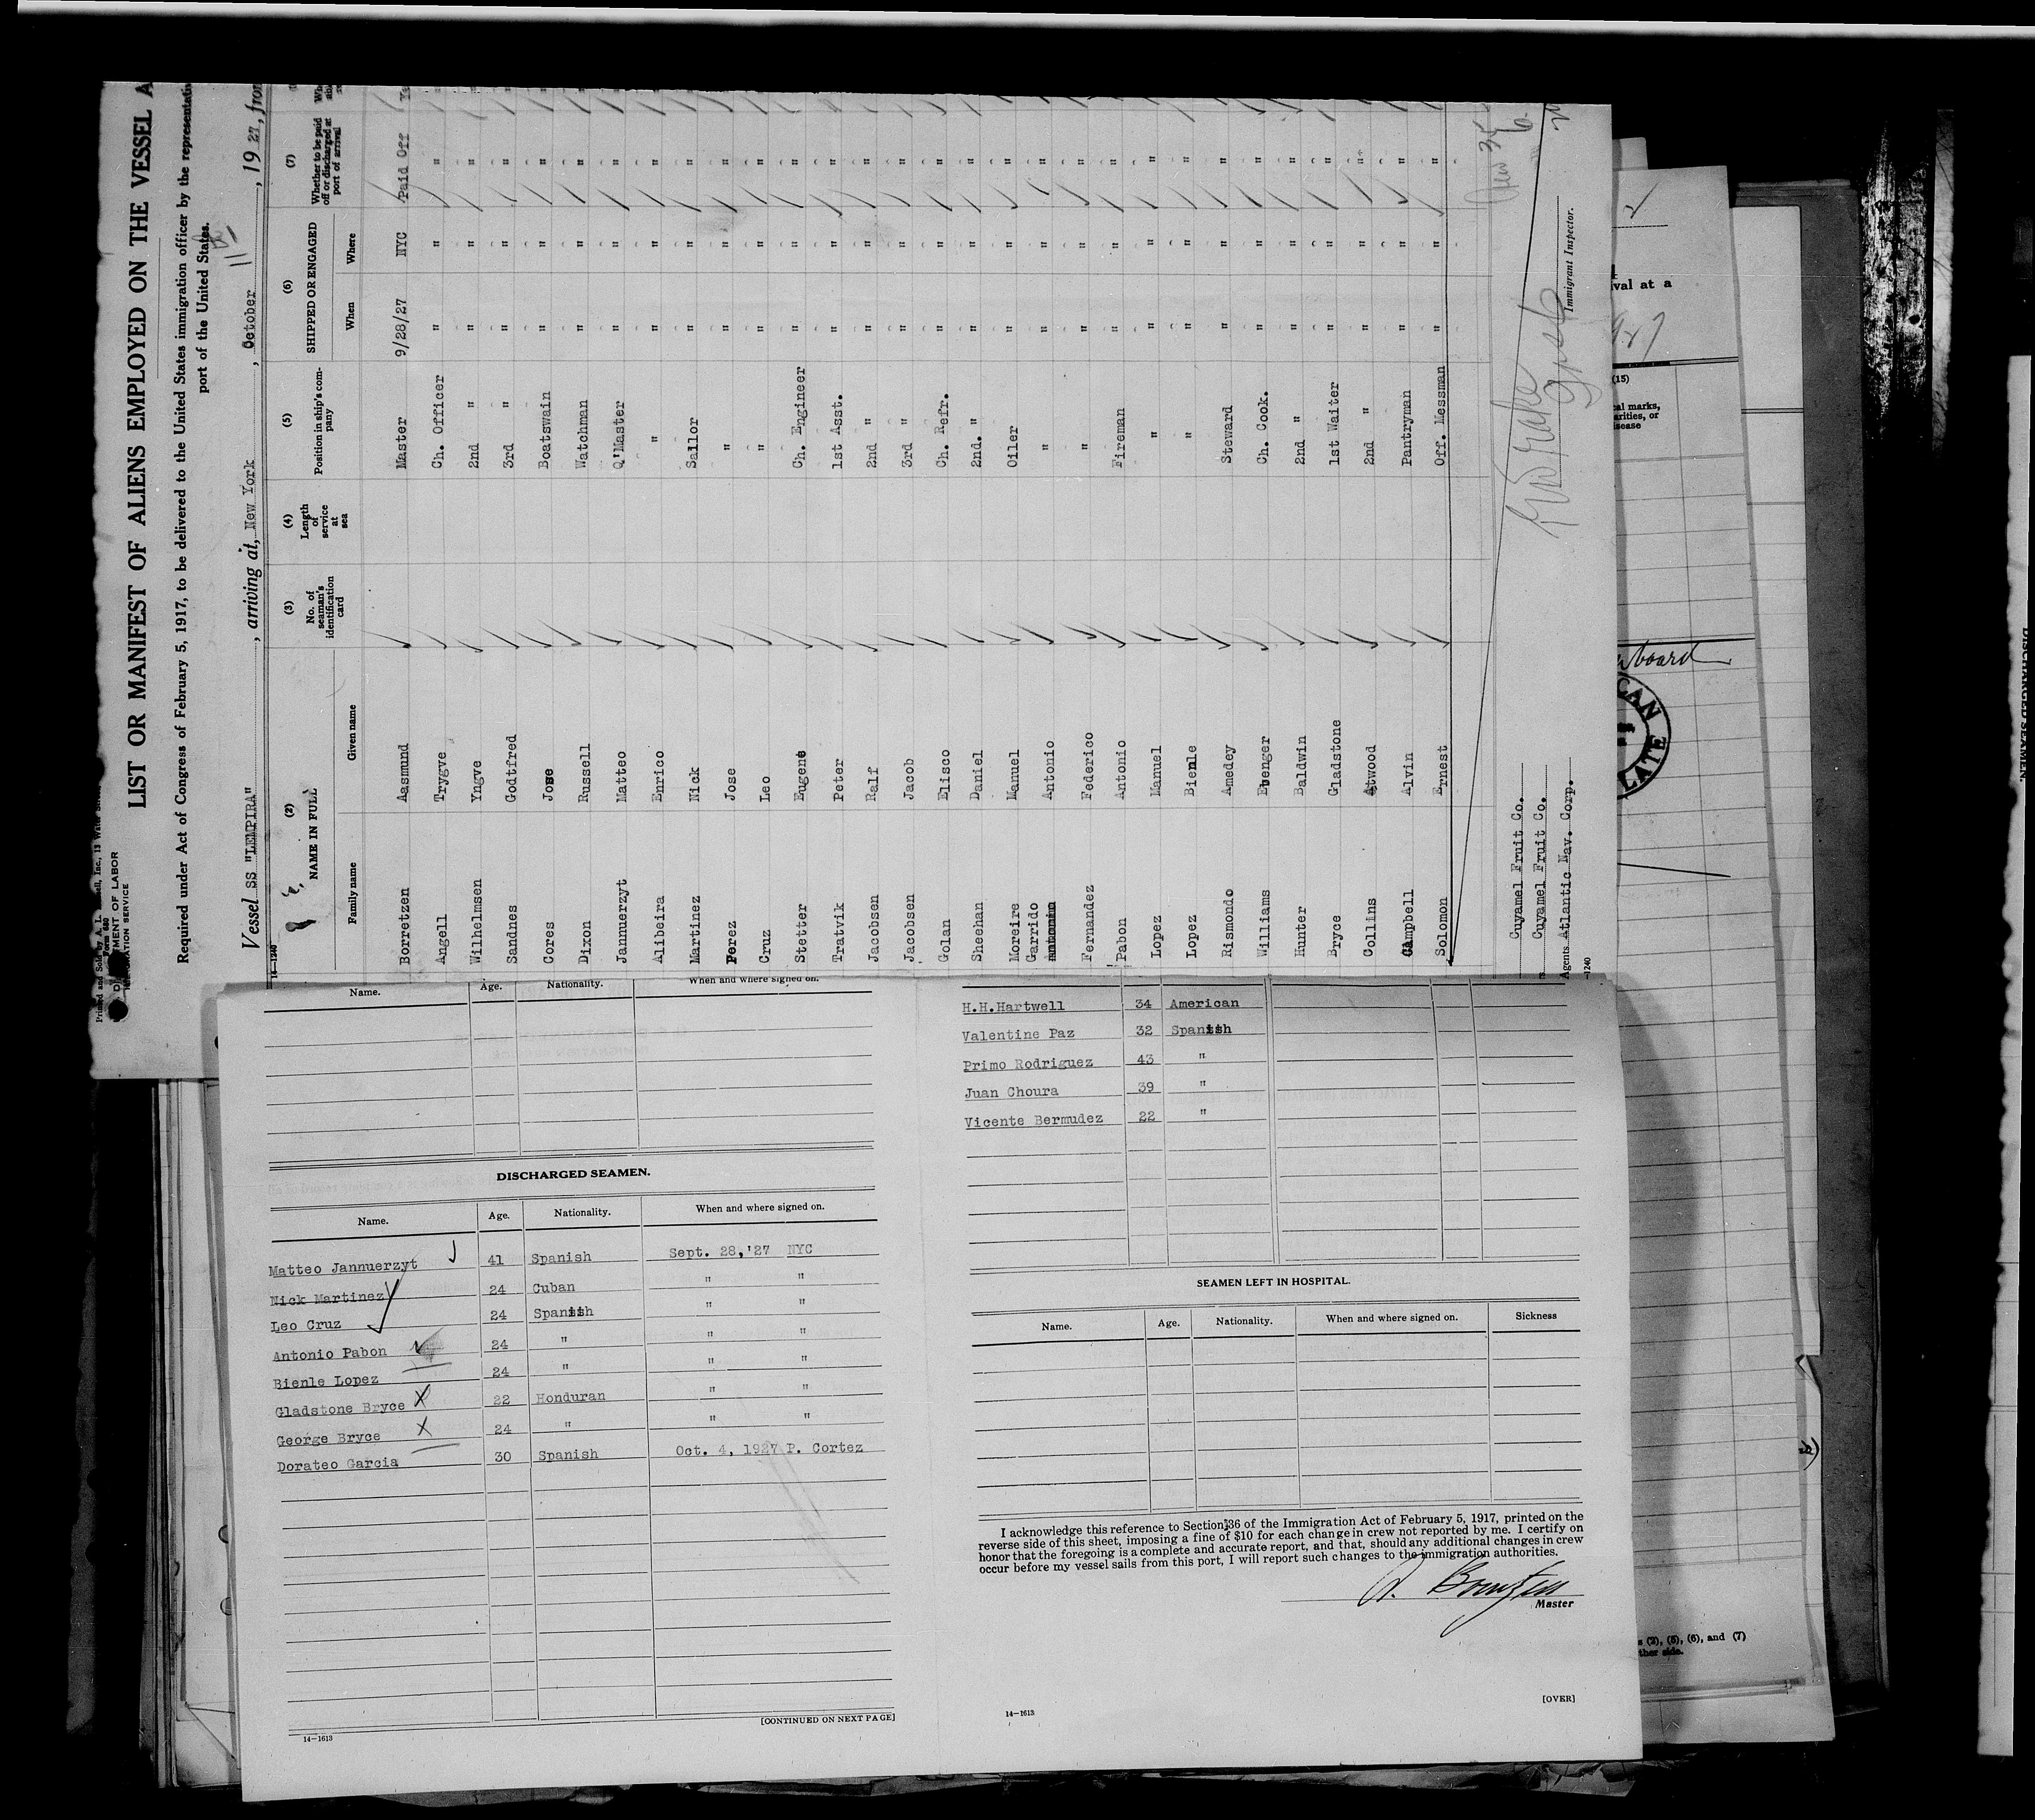 Printed and Sold by A. L.
Form 680
MENT OF LABOR
IMMIGRATION SERVICE
LIST OR MANIFEST OF ALIENS EMPLOYED ON THE VESSEL A
Required under Act of Congress of February 5, 1917, to be delivered to the United States immigration officer by the representativ
port of the United States.
Vessel SS "LEMPIRA", arriving at, New York, October 11, 1927, from
14-1240
(2) (3) (4) (5) (6) (7)
NAME IN FULL No. of seaman's identification card Length of service at sea Position in ship's company SHIPPED OR ENGAGED Whether to be paid off or discharged at port of arrival
Family name Given name When Where
Borretzen Aasmund Master 9/28/27 NYC Paid Off
Angell Trygve Ch. Officer " " "
Wilhelmsen Yngve 2nd " " " "
Sandnes Godtfred 3rd " " " "
Cores Jose Boatswain " " "
Dixon Russell Watchman " " "
Jannuerzyt Matteo Q'Master " " "
Alibeira Enrico " " " "
Martinez Nick Sailor " " "
Perez Jose " " " "
Cruz Leo " " " "
Stetter Eugene Ch. Engineer " " "
Tratvik Peter 1st Asst. " " "
Jacobsen Ralf 2nd " " " "
Jacobsen Jacob 3rd " " " "
Golan Elisco Ch. Refr. " " "
Sheehan Daniel 2nd. " " " "
Moreire Manuel Oiler " " "
Garrido Antonio " " " "
Fernandez Federico " " " "
Pabon Antonio Fireman " " "
Lopez Manuel " " " "
Lopez Bienle " " " "
Rismondo Amedey Steward " " "
Williams Ebenger Ch. Cook. " " "
Hunter Baldwin 2nd " " " "
Bryce Gladstone 1st Waiter " " "
Collins Atwood 2nd " " " "
Campbell Alvin Pantryman " " "
Solomon Ernest Off. Messman " " "
Cuyamel Fruit Co.
Cuyamel Fruit Co.
Agents Atlantic Nav. Corp.
Immigrant Inspector.
-1240
Name. Age. Nationality. When and where signed on.
DISCHARGED SEAMEN.
Name. Age. Nationality. When and where signed on.
Matteo Jannuerzyt 41 Spanish Sept. 28,'27 NYC
Nick Martinez 24 Cuban " "
Leo Cruz 24 Spanish " "
Antonio Pabon 24 " " "
Bienle Lopez 24 " " "
Gladstone Bryce X 22 Honduran " "
George Bryce X 24 " " "
Dorateo Garcia 30 Spanish Oct. 4, 1927 P. Cortez
[CONTINUED ON NEXT PAGE]
14-1613
H.H.Hartwell 34 American
Valentine Paz 32 Spanish
Primo Rodriguez 43 "
Juan Choura 39 "
Vicente Bermudez 22 "
SEAMEN LEFT IN HOSPITAL.
Name. Age. Nationality. When and where signed on. Sickness
I acknowledge this reference to Section 36 of the Immigration Act of February 5, 1917, printed on the
reverse side of this sheet, imposing a fine of $10 for each change in crew not reported by me. I certify on
honor that the foregoing is a complete and accurate report, and that, should any additional changes in crew
occur before my vessel sails from this port, I will report such changes to the immigration authorities.
Master
[OVER]
14-1613
val at a
(15)
al marks,
arities, or
isease
board
CAN
LATE
s (2), (5), (6), and (7)
ther side.
DISCHARGED SEAMEN.